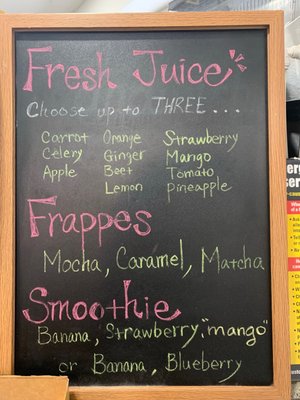 Fresh Juice
Choose up to THREE...
Carrot Orange Strawberry
Celery Ginger Mango
Apple Beet Tomato
Lemon Pineapple
Frappes
Mocha, Caramel, Matcha
Smoothie
Banana, Strawberry, "mango"
or Banana, Blueberry